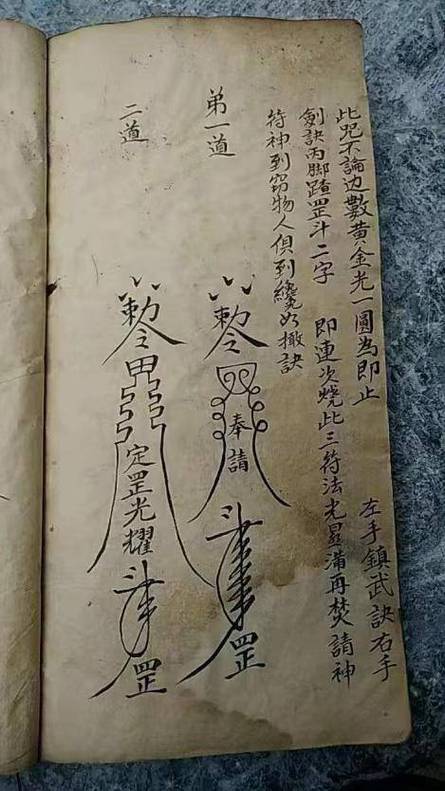 此咒不論边數黄金光一圓為即止
左手鎮武訣右手
劍訣两脚踏罡斗二字
即連次燒此三符法光昱满再焚請神
符神到窃物人俱到纔好撤訣
弟一道
敕令
奉請
斗
罡
二道
敕令
定罡光耀
斗
罡